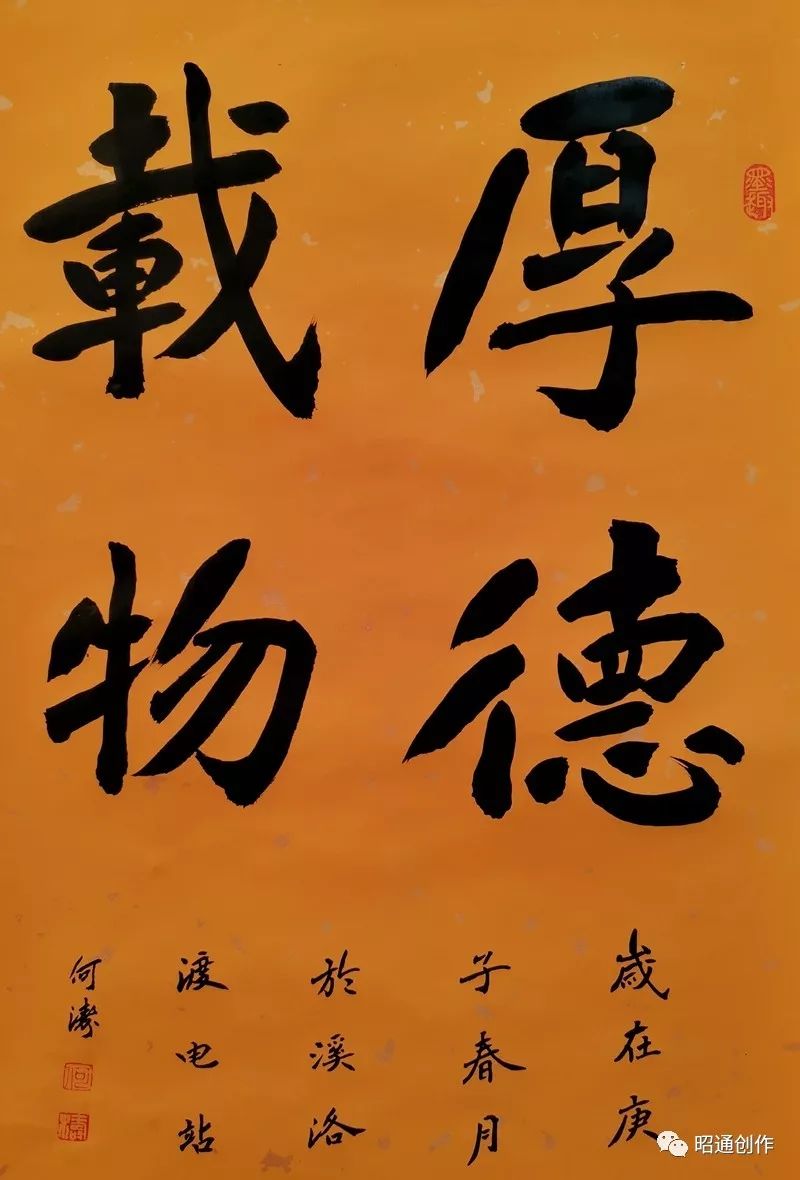 厚德
載物
歲在庚
子春月
於溪洛
渡电站
何濤
墨趣
何
濤
昭通创作